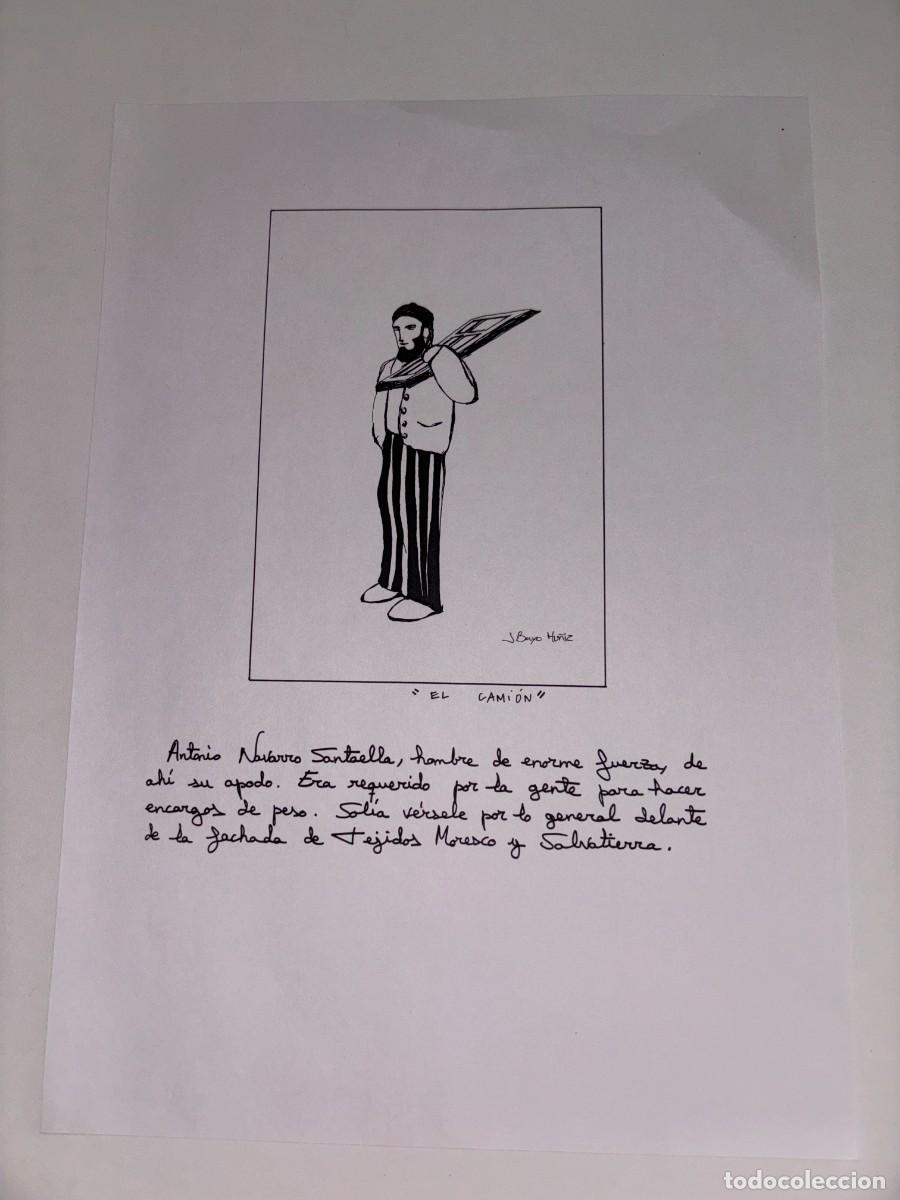 J Bayo Muñiz
"EL CAMIÓN"
Antonio Navarro Santaella, hombre de enorme fuerza, de
ahí su apodo. Era requerido por la gente para hacer
encargos de peso. Solía vérsele por lo general delante
de la fachada de Tejidos Moresco y Salvatierra.
todocoleccion